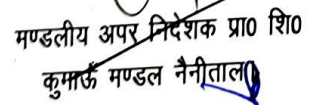 मण्डलीय अपर निदेशक प्रा0 शि0
कुमाऊँ मण्डल नैनीताल